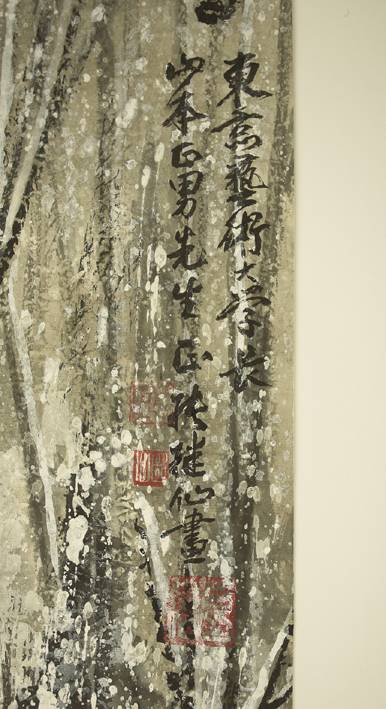 東京藝術大学長
山本正男先生正張継仙畫